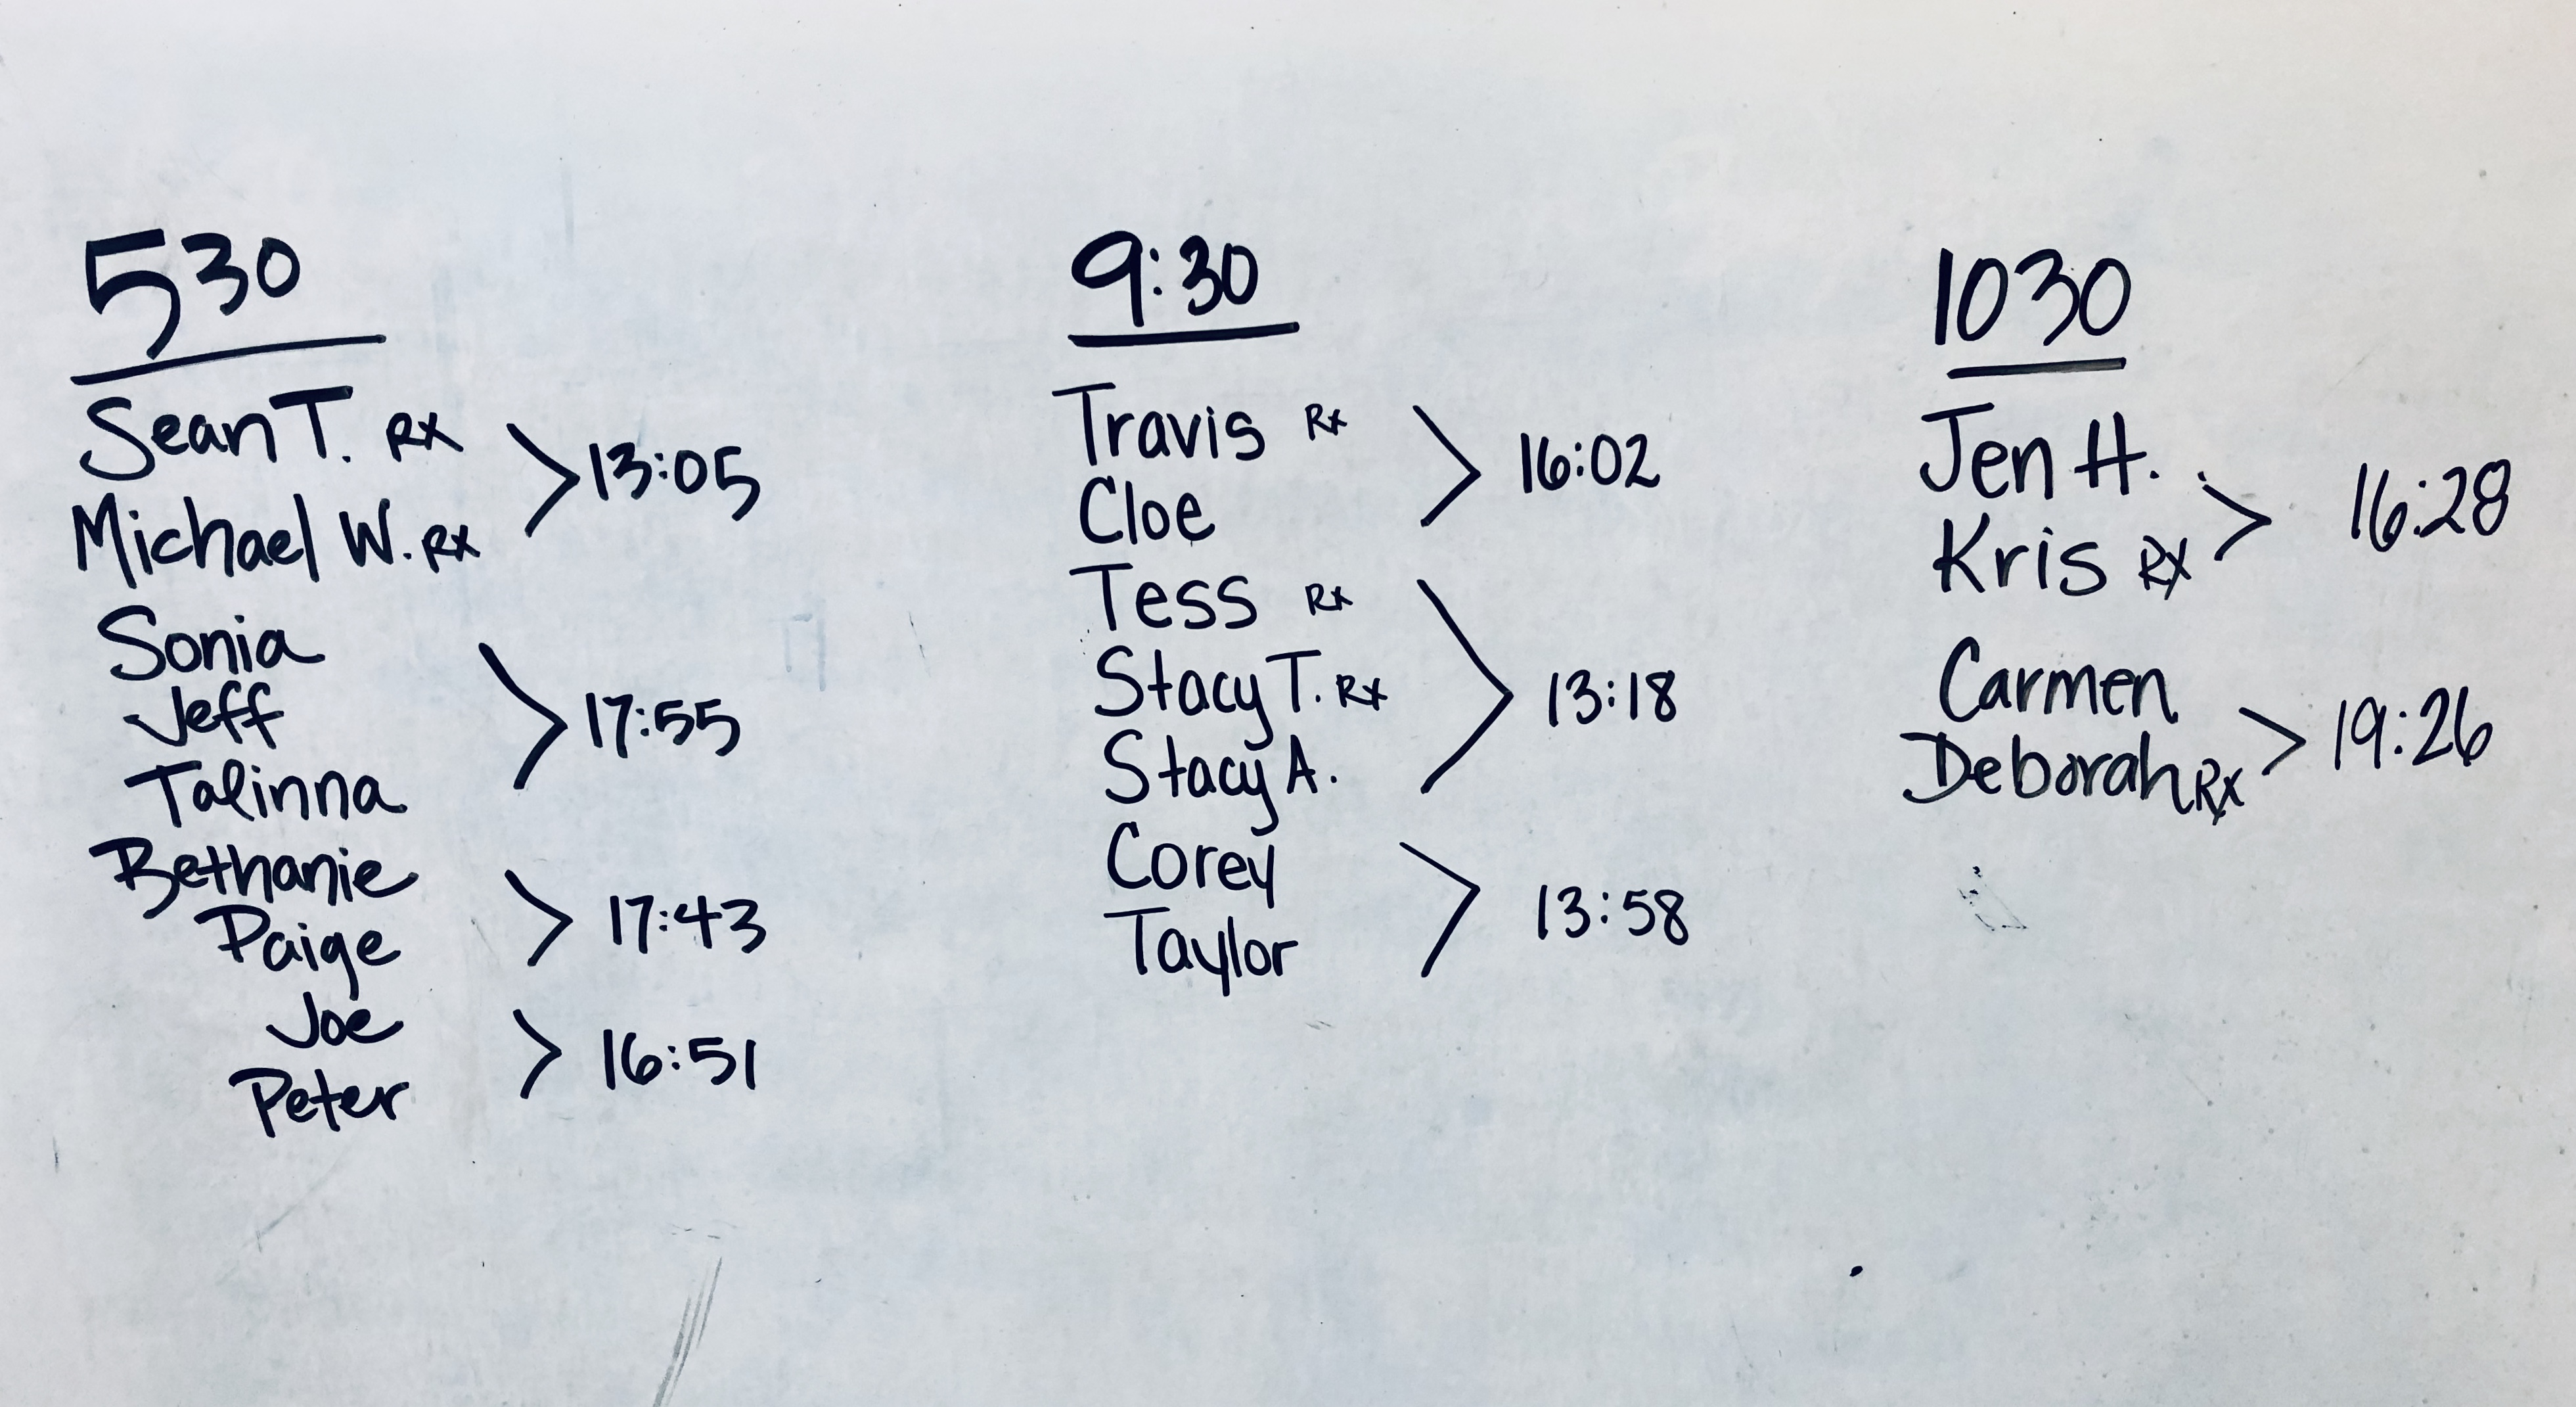 530
Sean T. RX
Michael W. RX
> 13:05
Sonia
Jeff
Talinna
> 17:55
Bethanie
Paige
> 17:43
Joe
Peter
> 16:51
9:30
Travis Rx
Cloe
> 16:02
Tess Rx
Stacy T. Rx
Stacy A.
> 13:18
Corey
Taylor
> 13:58
1030
Jen H.
Kris RX
> 16:28
Carmen
Deborah RX
> 19:26